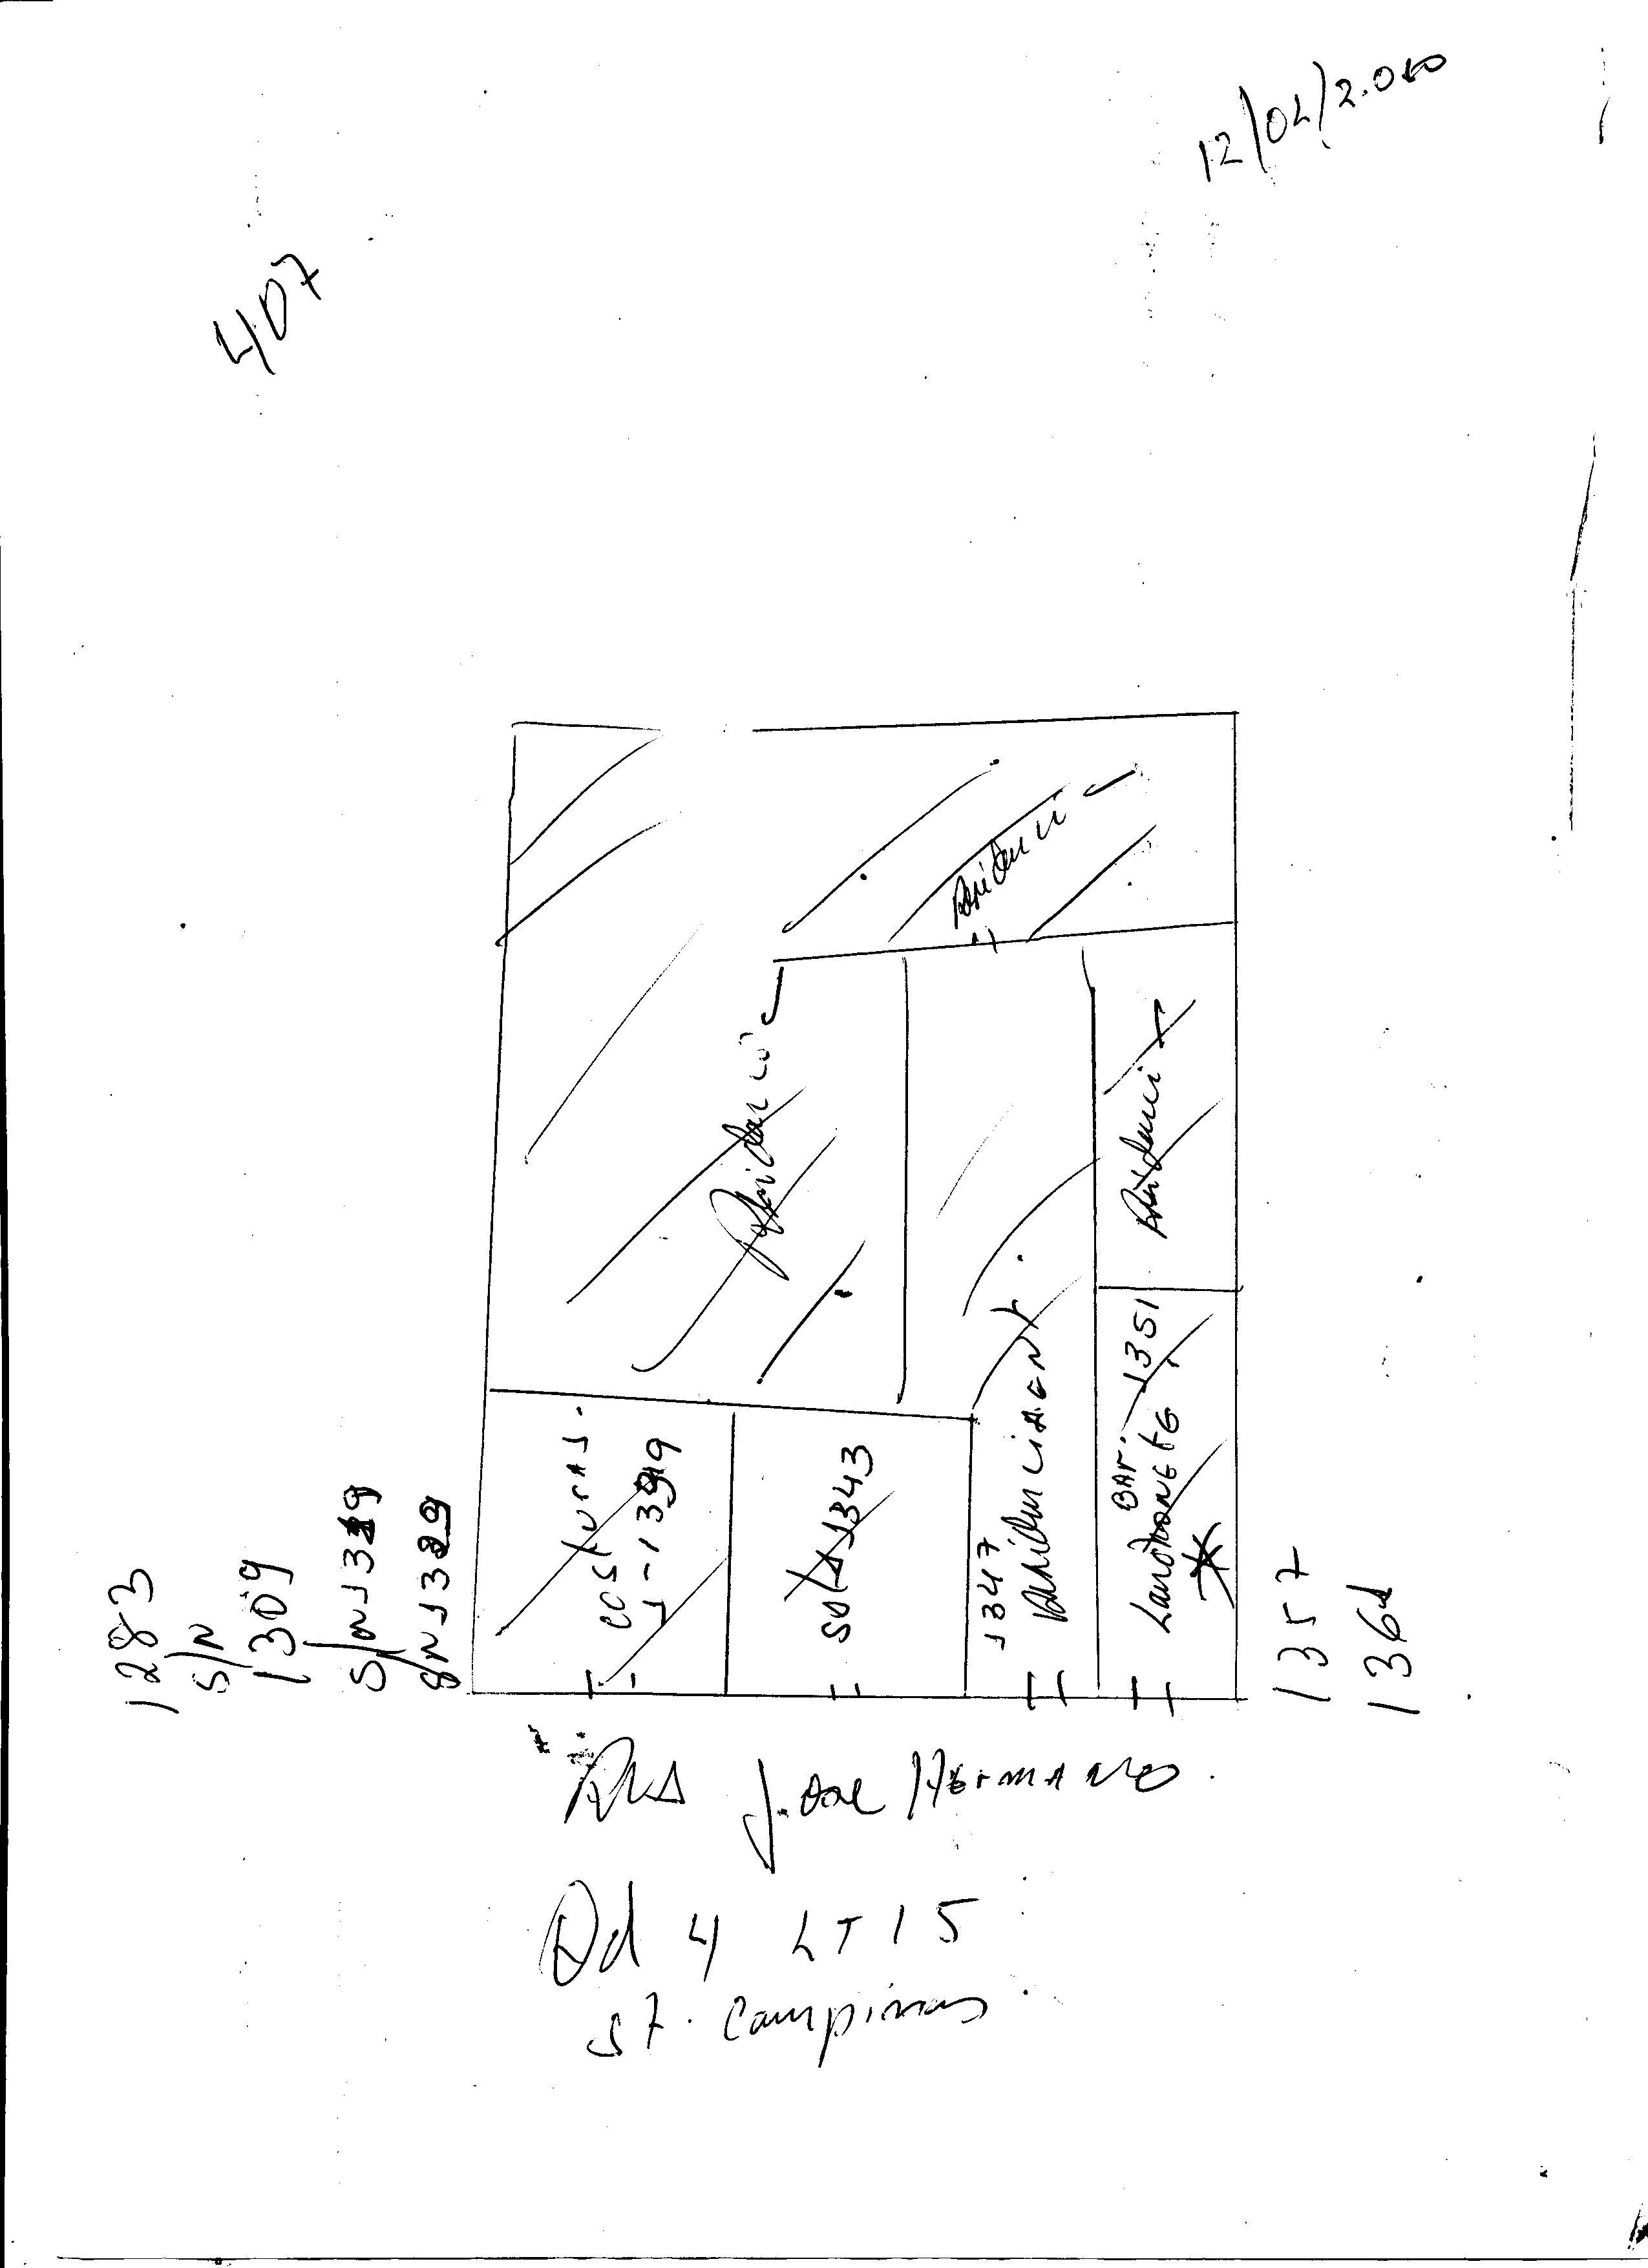 12/04/2.010
407
Residencia
Residencia
Residencia
costuras.
1339
Sala 1343
1347
Residencia
BAR. 1351
Lanchonete
1283
S/N
1309
S/N 1329
S/N 1329
1357
1361
Rua Jose Hermano.
Qd 4 LT 15
St. Campinas